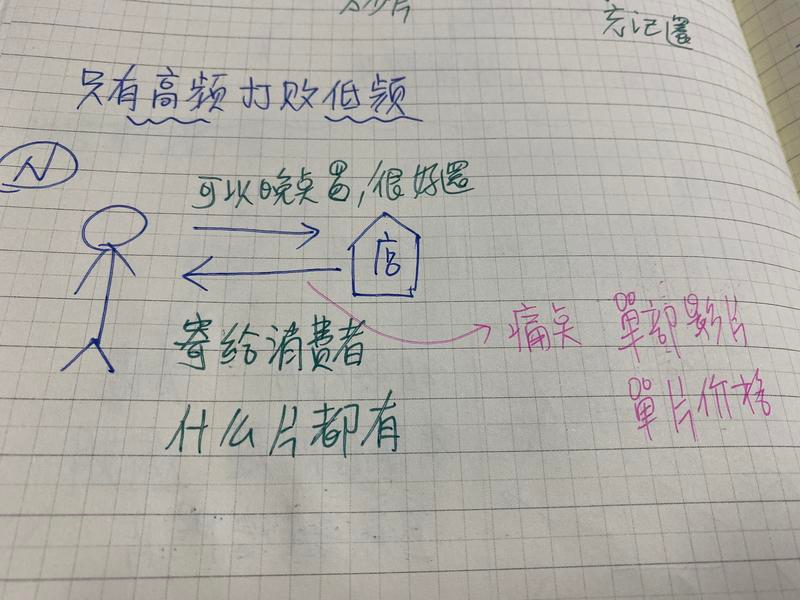 忘记還
只有高频打败低频
N
可以晚点還,很好還
店
寄给消费者
痛点 單部影片
單片价格
什么片都有